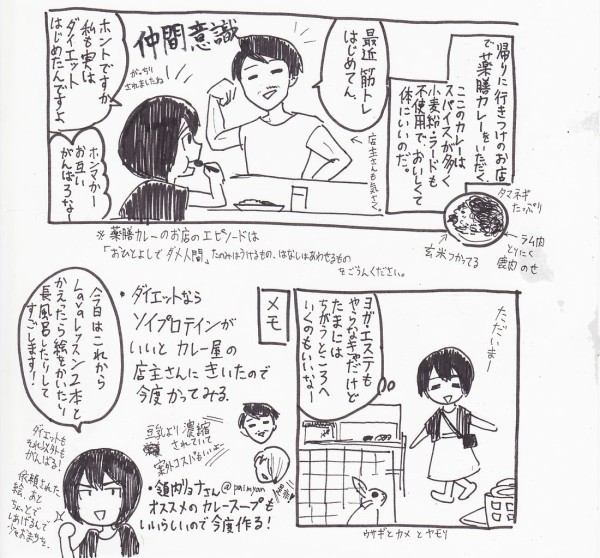 帰りに行きつけのお店
で薬膳カレーをいただく
ここのカレーは
スパイスが多く
小麦粉・ラードも
不使用で、おいしくて
体にいいのだ。
タマネギ
たっぷり
ラム肉
とりにく
鹿肉のせ
玄米つかってる
最近筋トレ
はじめてん。
店主さんも気さく。
仲間意識
がっちり
されましたね
ホントですか
私も実は
ダイエット
はじめたんですよ
ホンマかー
お互い
がんばろなー
※薬膳カレーのお店のエピソードは
「おひとよしでダメ人間」たのみはうけるもの、はなしはあわせるもの
をごらんください。
ヨガ・エステも
やらなきゃだけど
たまには
ちがうところへ
いくのもいいなー
ただいまー
ウサギとカメとヤモリ
メモ
・ダイエットなら
ソイプロテインが
いいとカレー屋の
店主さんにきいたので
今度かってみる。
豆乳より濃縮
されていて
案外コスパもいいよ。
・領内リョナさん@
オススメのカレースープも
いいらしいので今度作る!
今日はこれから
Lavaレッスン2本と
かえったら絵をかいたり
長風呂したりして
すごします!
ダイエットも
それ以外も
がんばる!
依頼された
絵、あと
ちょっとで
しあげるんで